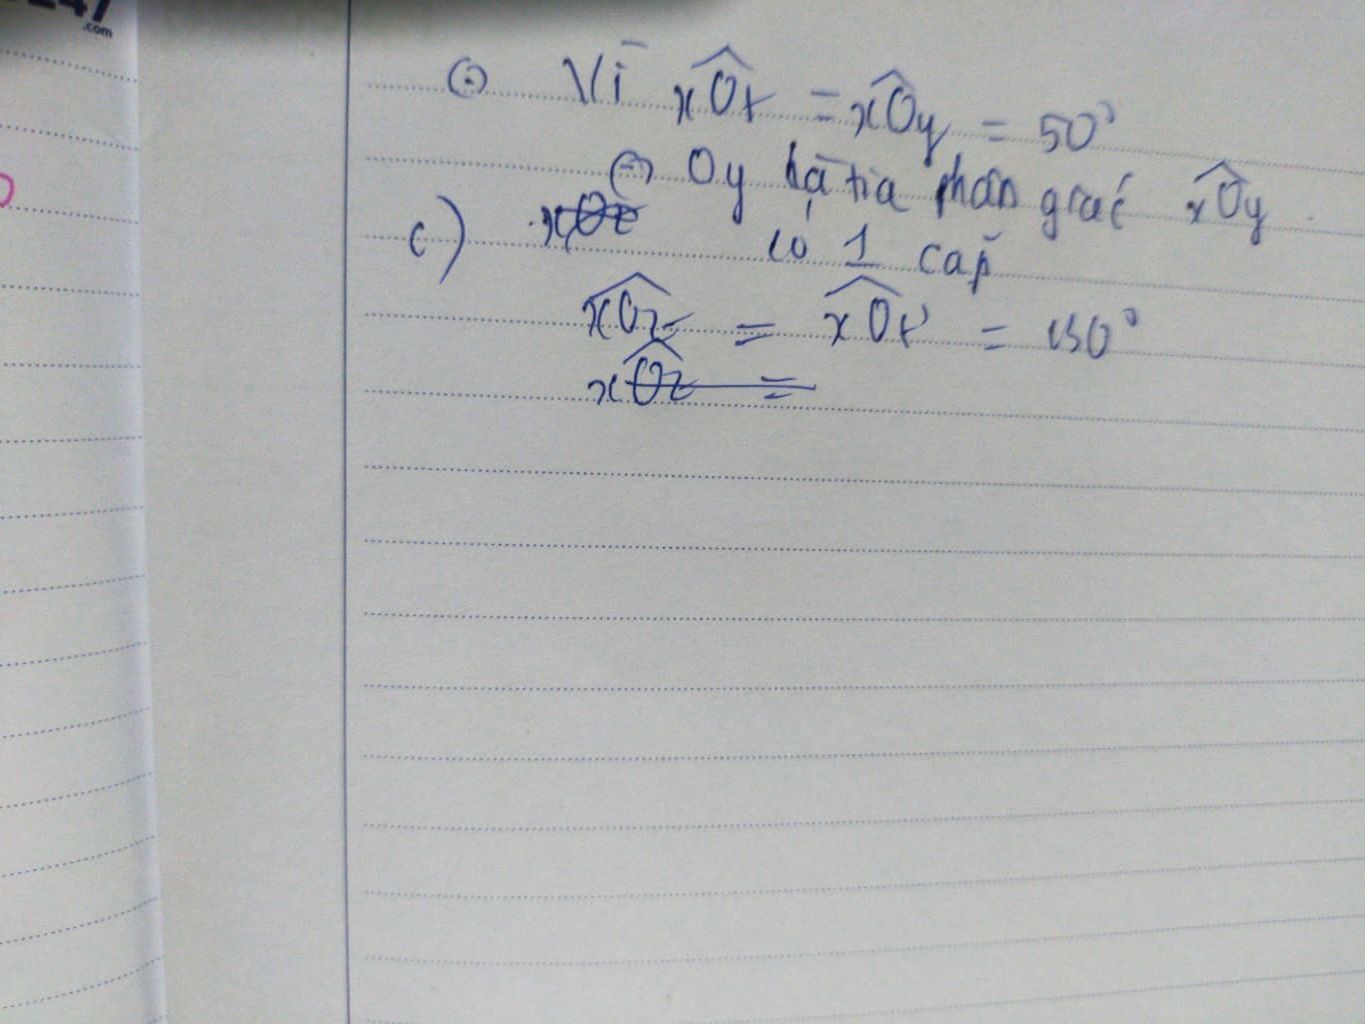 247
.com
Vì xOt = xOy = 50°
Oy là tia phân giác xOy
c) có 1 cặp
xOz = xOt' = 130°
xOz =